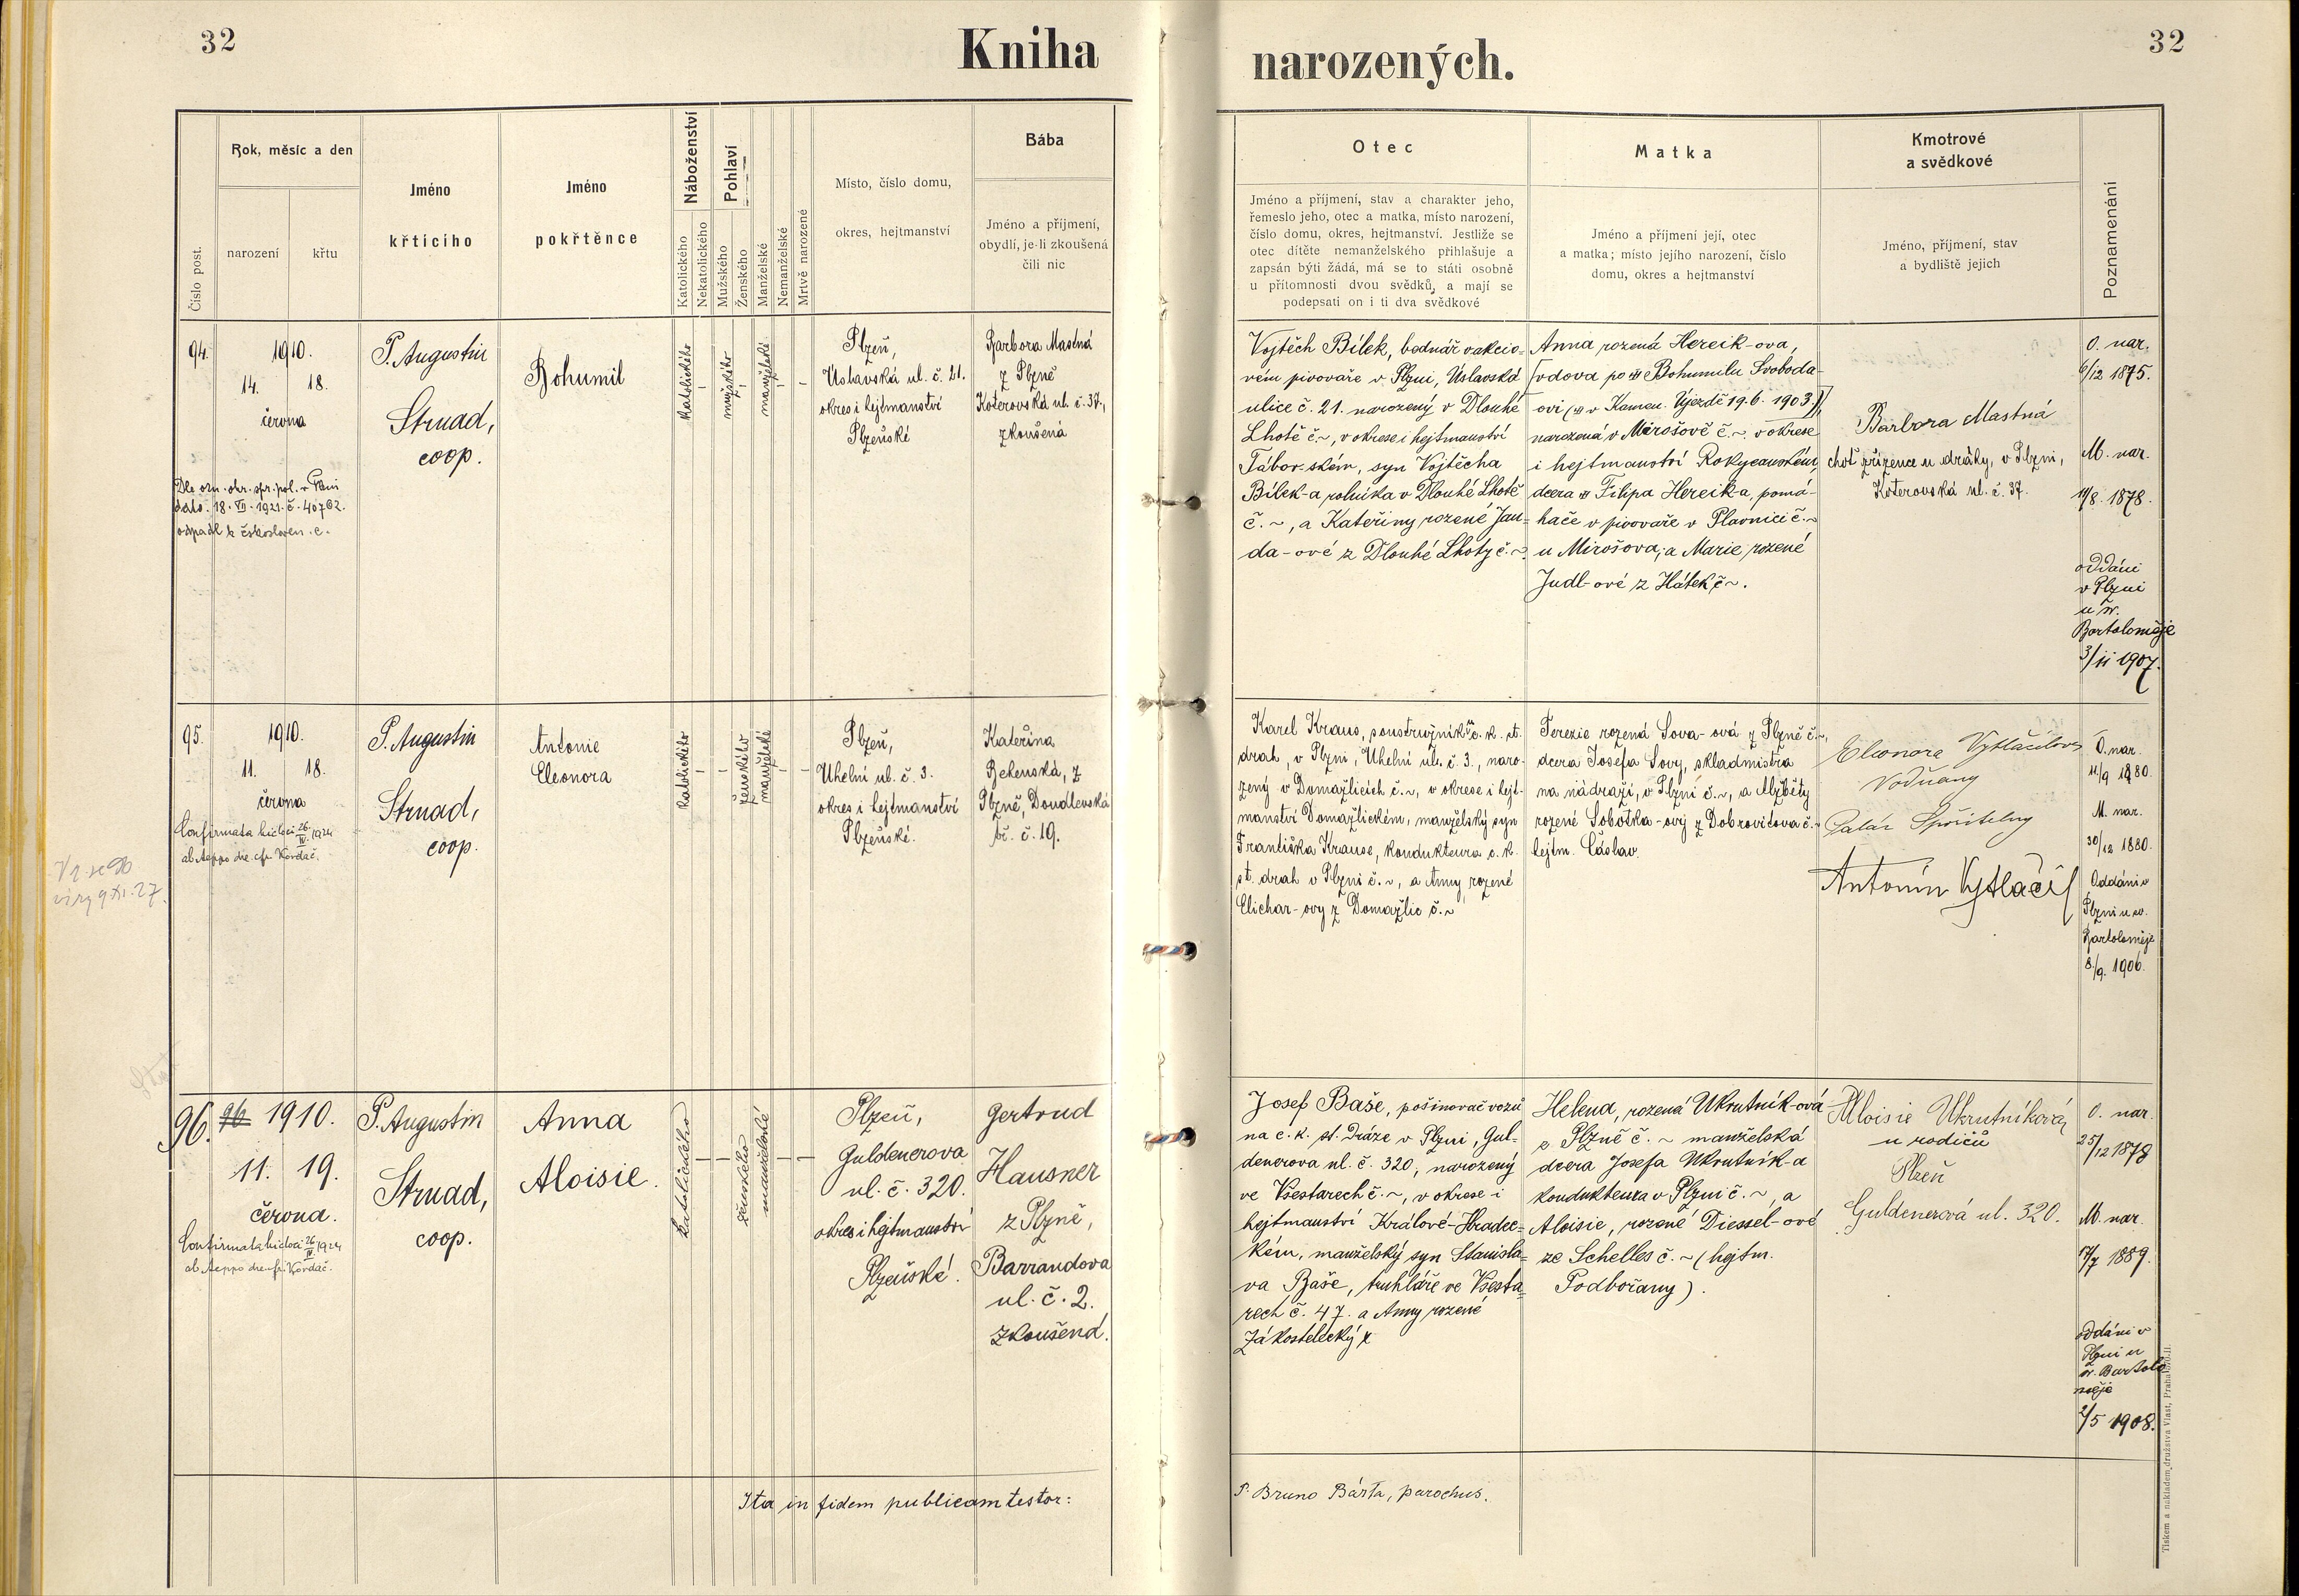 32
Kniha
narozených.
32
Číslo post.
Rok, měsíc a den
narození
křtu
Jméno
křtícího
Jméno
pokřtěnce
Náboženství
Katolického
Nekatolického
Pohlaví
Mužského
Ženského
Manželské
Nemanželské
Mrtvě narozené
Místo, číslo domu,
okres, hejtmanství
Bába
Jméno a příjmení,
obydlí, je-li zkoušená
čili nic
Otec
Jméno a příjmení, stav a charakter jeho,
řemeslo jeho, otec a matka, místo narození,
číslo domu, okres, hejtmanství. Jestliže se
otec dítěte nemanželského přihlašuje a
zapsán býti žádá, má se to státi osobně
u přítomnosti dvou svědků, a mají se
podepsati on i ti dva svědkové
Matka
Jméno a příjmení její, otec
a matka; místo jejího narození, číslo
domu, okres a hejtmanství
Kmotrové
a svědkové
Jméno, příjmení, stav
a bydliště jejich
Poznamenání
94.
1910.
14. 18.
června
Dle ozn. okr. spr. pol. v Plzni
dato. 18. VII. 1921. č. 40762.
odpadl k českosloven. c.
P. Augustin
Strnad,
coop.
Bohumil
katolického
–
mužského
–
manželské
–
–
Plzeň,
Úslavská ul. č. 21.
okres i hejtmanství
Plzeňské
Barbora Mastná
z Plzně
Koterovská ul. č. 37.,
zkoušená
Vojtěch Bílek, bednář v akcio-
vém pivovaře v Plzni, Úslavská
ulice č. 21. narozený v Dlouhé
Lhotě č. ~, v okrese i hejtmanství
Táborském, syn Vojtěcha
Bílek-a rolníka v Dlouhé Lhotě
č. ~, a Kateřiny rozené Jan-
da-ové z Dlouhé Lhoty č. ~.
Anna rozená Hereik-ova,
[vdova po Bohumilu Svoboda-
ovi (v Kamen. Újezdě 19.6. 1903.)],
narozená v Mirošově č. ~. v okrese
i hejtmanství Rokycanském,
dcera Filipa Hereik-a, pomá-
hače v pivovaře v Plavnici č. ~
u Mirošova, a Marie rozené
Judl-ové z Hátek č ~.
Barbora Mastná
choť zřízence u dráhy, v Plzni,
Koterovská ul. č. 37.
O. nar.
6/12 1875.
M. nar.
11/8. 1878.
oddáni
v Plzni
u sv.
Bartoloměje
3/11 1907.
95.
1910.
11. 18.
června
Confirmata hic loci 26/IV. 1924
ab Aeppo dre. cfr Kordač.
P. Augustin
Strnad,
coop.
Antonie
Eleonora
katolického
–
–
ženského
manželské
–
–
Plzeň,
Uhelní ul. č. 3.
okres i hejtmanství
Plzeňské.
Kateřina
Bekenská, z
Plzně, Doudlevská
tř. č. 19.
Karel Kraus, soustružník u c. k. st.
drah, v Plzni, Uhelní ul. č. 3., naro-
zený v Domažlicích č. ~, v okrese i hejt-
manství Domažlickém, manželský syn
Františka Krause, kondukteura c. k.
st. drah v Plzni č. ~, a Anny, rozené
Elichar-ovy z Domažlic č. ~
Terezie rozená Sova-ová z Plzně č. ~,
dcera Josefa Sovy, skladmistra
na nádraží, v Plzni č. ~, a Alžběty
rozené Sobotka-ový z Dobrovítova č. ~
hejtm. Čáslav.
Eleonora Vytláčilova
Vodňany
Antonín Vytlačil
O. nar.
11/9 1880.
M. nar.
30/12 1880.
Oddáni v
Plzni u sv.
Bartoloměje
8./9. 1906.
96.
1910.
11. 19.
června.
Confirmata hic loci 26/IV. 1924
ab Aeppo dre. cfr. Kordač.
P. Augustin
Strnad,
coop.
Anna
Aloisie.
katolického
–
–
ženského
manželské
–
–
Plzeň,
Guldenerova
ul. č. 320.
okres i hejtmanství
Plzeňské.
Gertrud
Hausner
z Plzně,
Barrandova
ul. č. 2.
zkoušená.
Josef Baše, pošinovač vozů
na c. k. st. Dráze v Plzni, Gul-
denerova ul. č. 320, narozený
ve Všestarech č. ~, v okrese i
hejtmanství Králové-Hradec-
kém, manželský syn Stanisla-
va Baše, truhláře ve Všesta-
rech č. 47. a Anny rozené
Zákostelecký
Helena, rozená Ukrutník-ová
z Plzně č. ~ manželská
dcera Josefa Ukrutník-a
kondukteura v Plzni č. ~, a
Aloisie, rozené Diessel-ové
ze Schelles č. ~ (hejtm.
Podbořany).
Aloisie Ukrutníková,
u rodičů
Plzeň
Guldenerová ul. 320.
O. nar.
25/12 1878
M. nar.
17/7 1889.
oddáni v
Plzni u
sv. Bartolo
měje
2/5 1908.
Ita in fidem publicam testor:
P. Bruno Bárta, parochus.